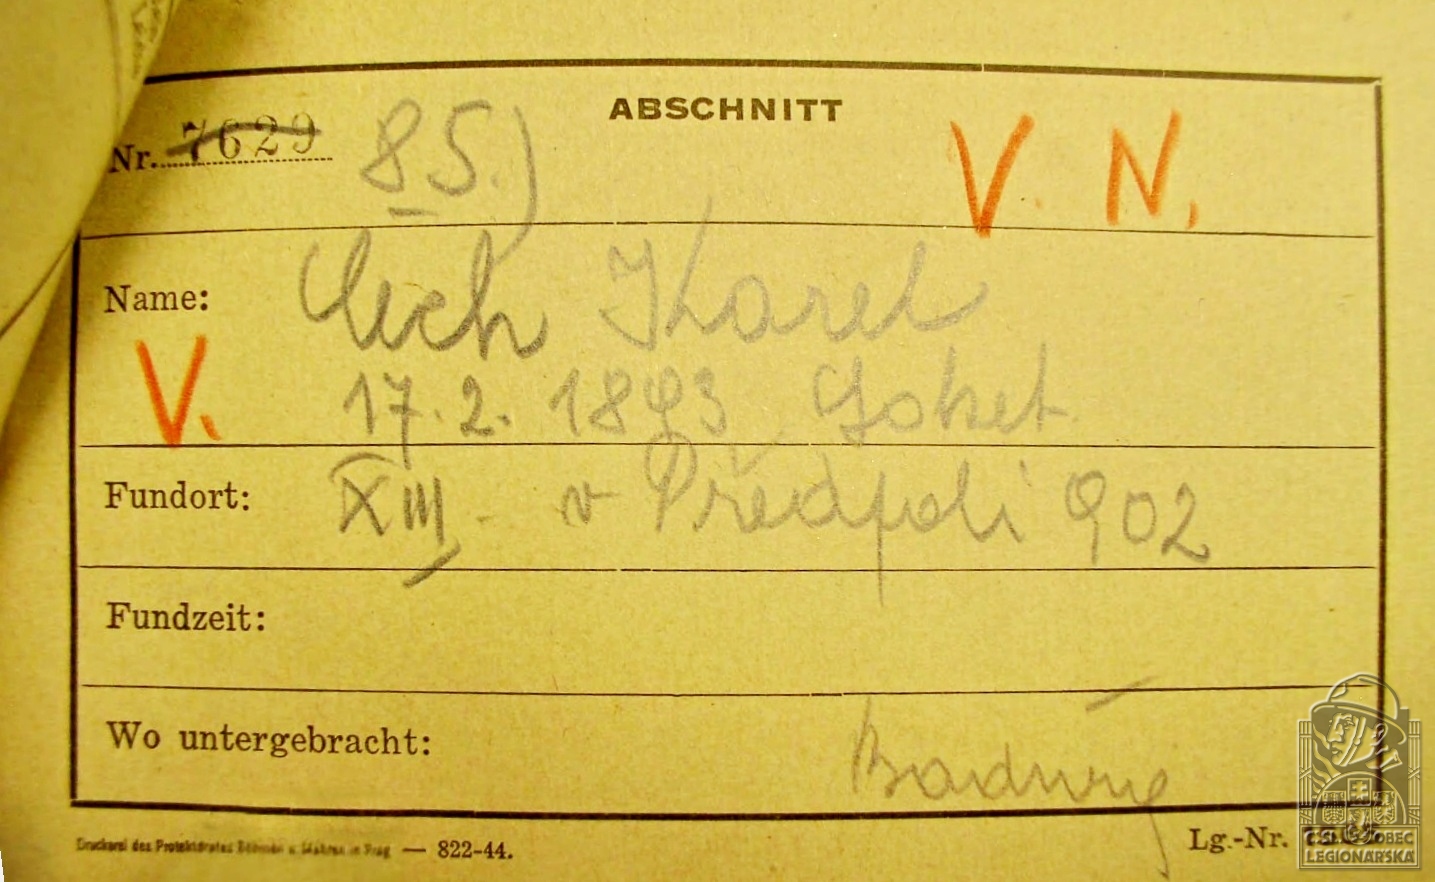 ABSCHNITT
Nr. 7629 85.) V. N.
Name: Čech Karel
V. 17.2. 1893
Fundort: XIII - v Předpolí 902
Fundzeit:
Wo untergebracht:
Druckerei des Protektorates Böhmen u. Mähren in Prag — 822-44.
Lg.-Nr.
OBEC
LEGIONÁŘSKÁ